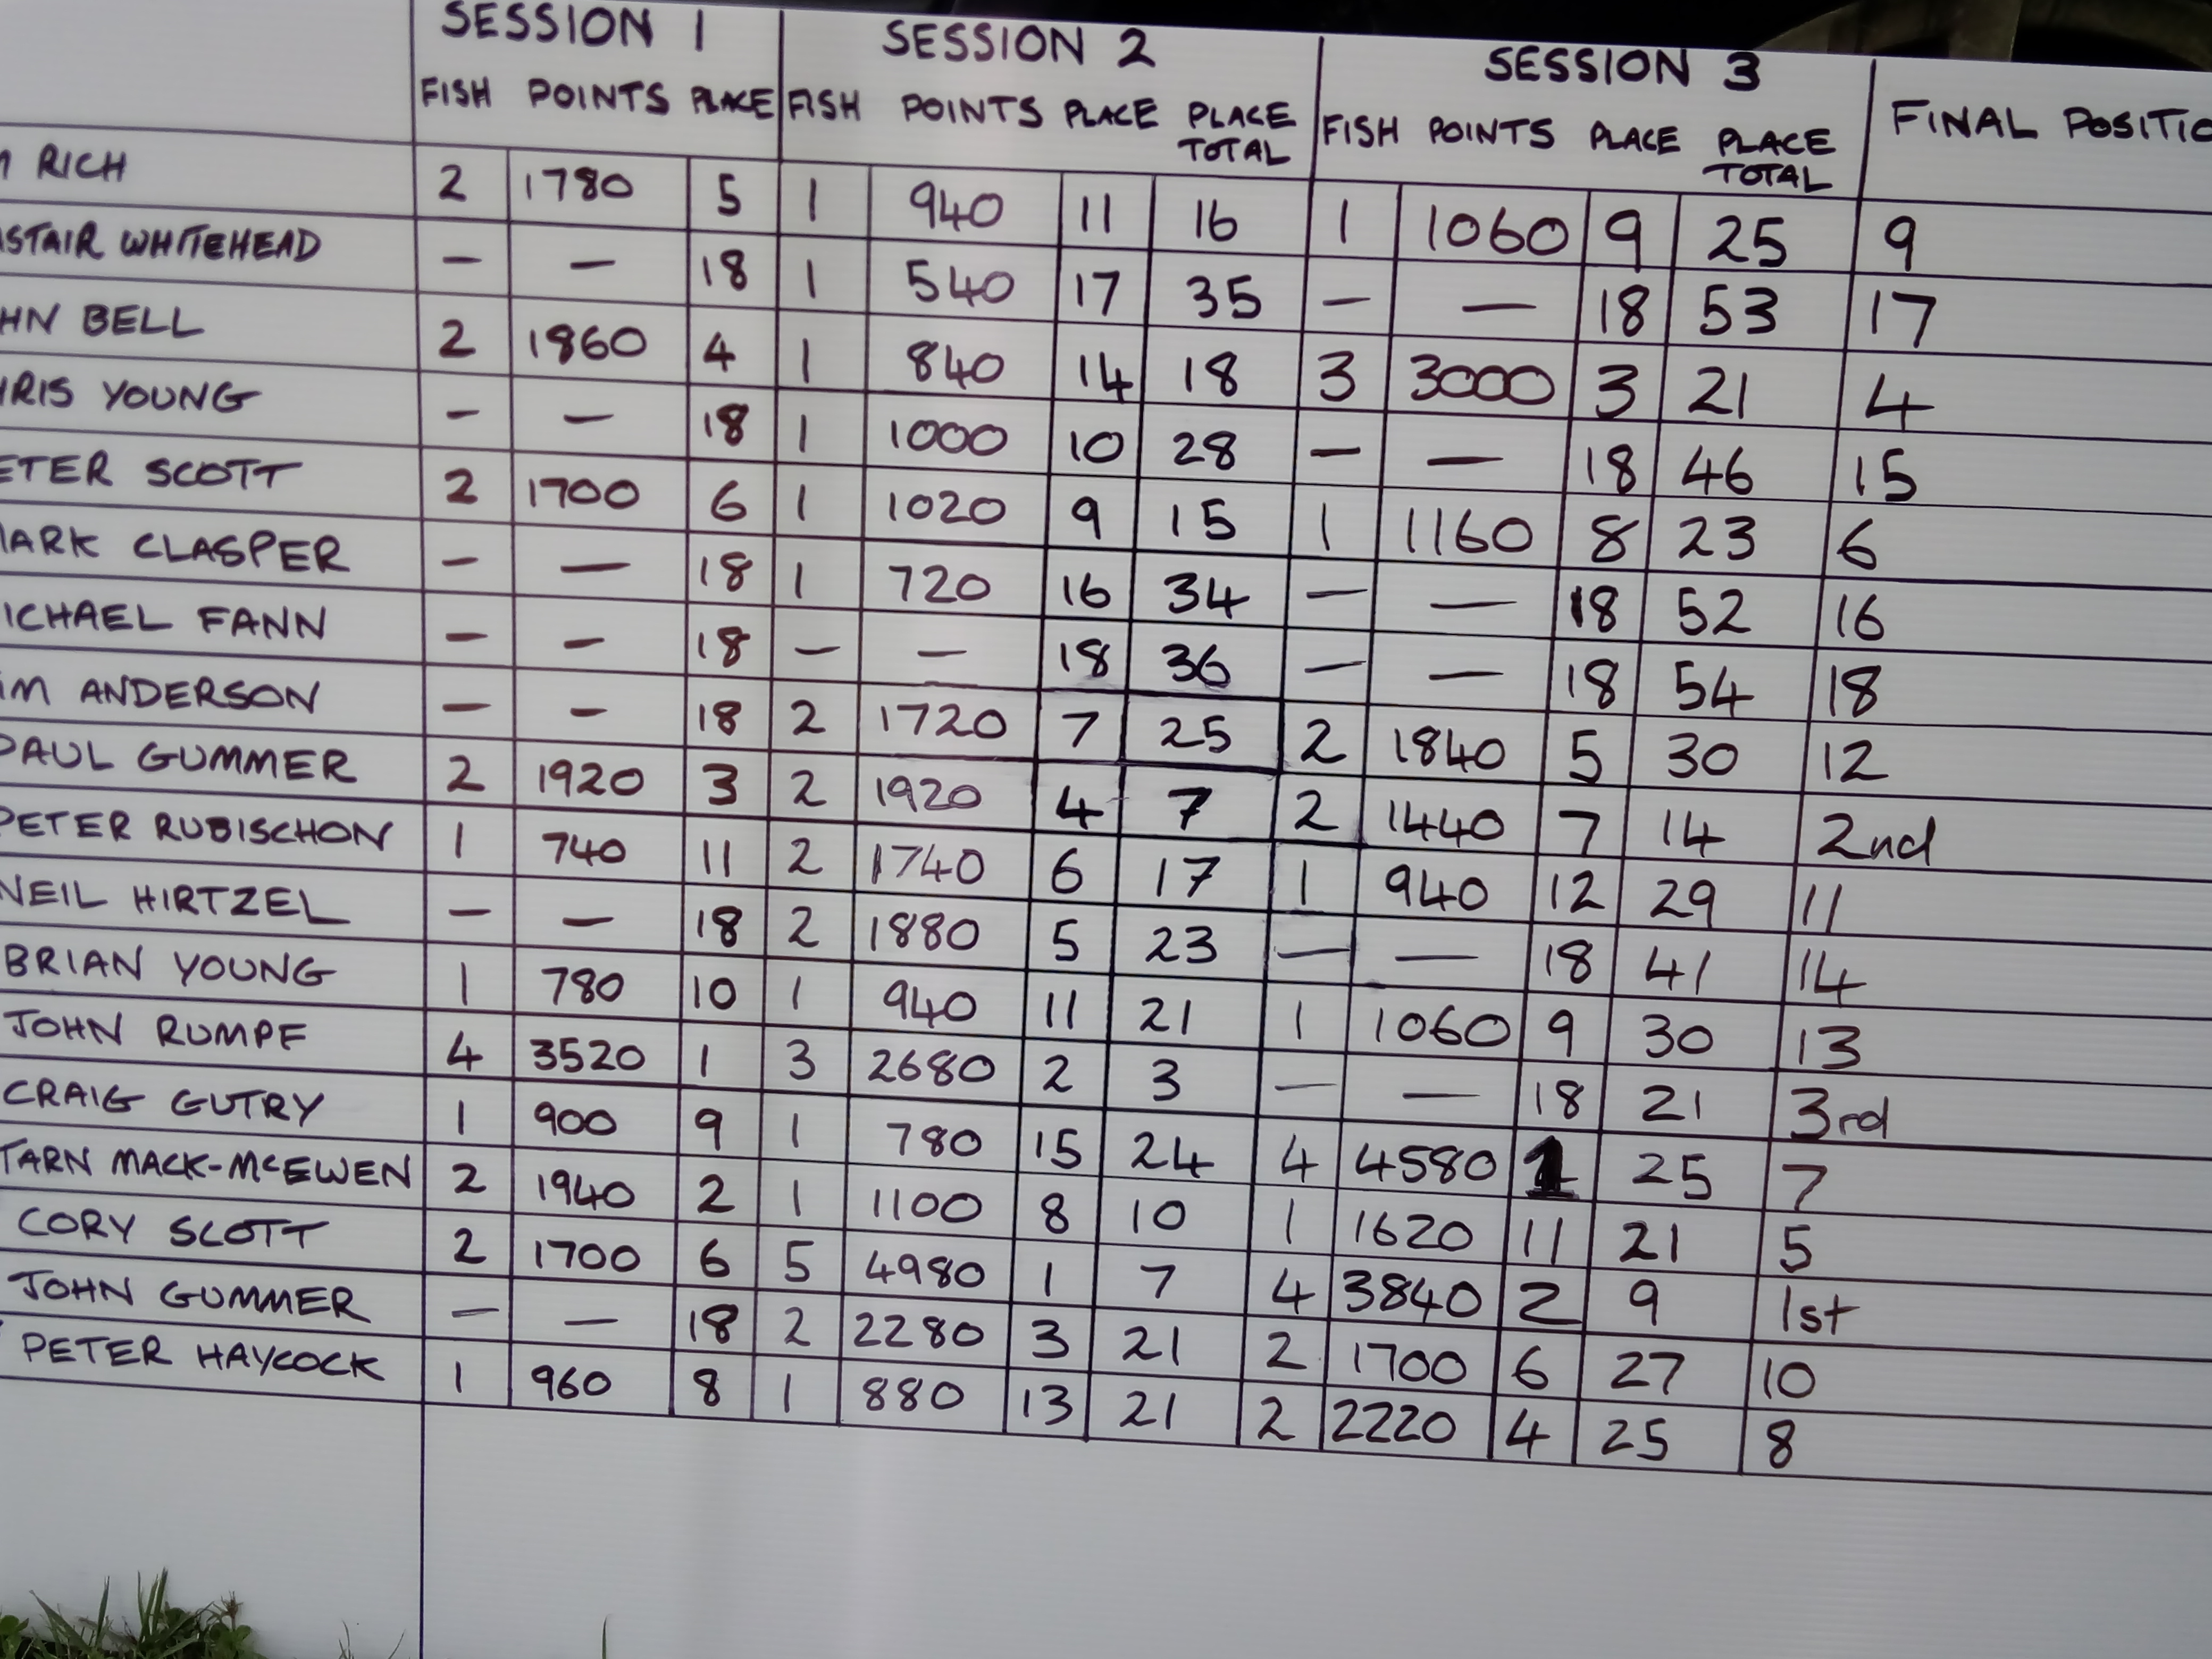 SESSION 1 SESSION 2 SESSION 3
FISH POINTS PLACE FISH POINTS PLACE PLACE TOTAL FISH POINTS PLACE PLACE TOTAL FINAL POSITIO
RICH 2 1780 5 1 940 11 16 1 1060 9 25 9
STAIR WHITEHEAD – – 18 1 540 17 35 – – 18 53 17
HN BELL 2 1860 4 1 840 14 18 3 3000 3 21 4
RIS YOUNG – – 18 1 1000 10 28 – – 18 46 15
ETER SCOTT 2 1700 6 1 1020 9 15 1 1160 8 23 6
ARK CLASPER – – 18 1 720 16 34 – – 18 52 16
ICHAEL FANN – – 18 – – 18 36 – – 18 54 18
IM ANDERSON – – 18 2 1720 7 25 2 1840 5 30 12
PAUL GUMMER 2 1920 3 2 1920 4 7 2 1440 7 14 2nd
PETER RUBISCHON 1 740 11 2 1740 6 17 1 940 12 29 11
NEIL HIRTZEL – – 18 2 1880 5 23 – – 18 41 14
BRIAN YOUNG 1 780 10 1 940 11 21 1 1060 9 30 13
JOHN RUMPF 4 3520 1 3 2680 2 3 – – 18 21 3rd
CRAIG GUTRY 1 900 9 1 780 15 24 4 4580 1 25 7
TARN MACK-McEWEN 2 1940 2 1 1100 8 10 1 1620 11 21 5
CORY SCOTT 2 1700 6 5 4980 1 7 4 3840 2 9 1st
JOHN GUMMER – – 18 2 2280 3 21 2 1700 6 27 10
PETER HAYCOCK 1 960 8 1 880 13 21 2 2220 4 25 8